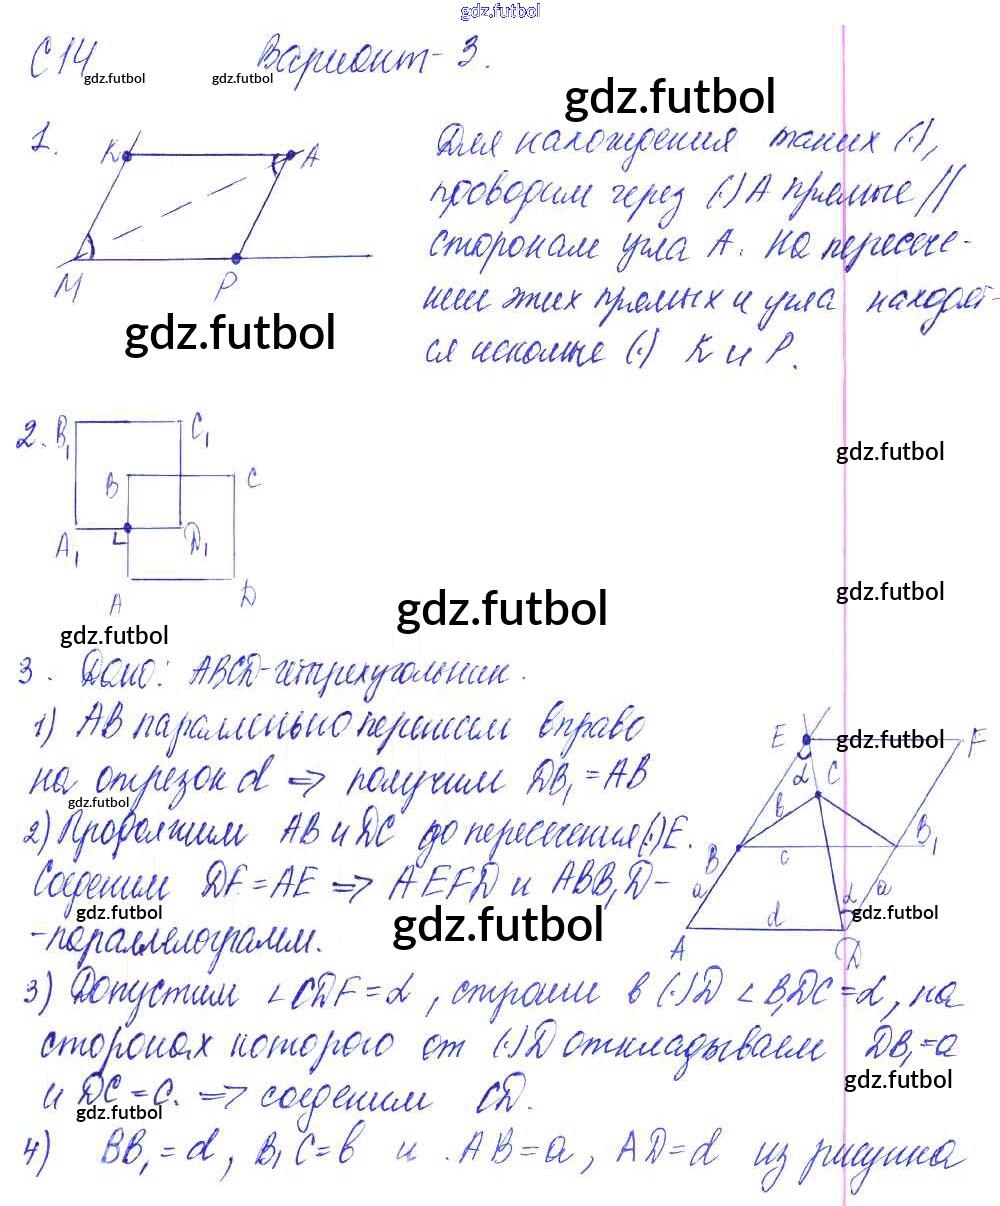 gdz.futbol
С14 Вариант-3.
gdz.futbol gdz.futbol
gdz.futbol
1. K A
M P
Для нахождения таких (·),
проводим через (·) А прямые //
сторонам угла А. На пересече-
нии этих прямых и угла находят-
ся искомые (·) К и Р.
gdz.futbol
2. B₁ C₁
B C
A₁ L D₁
A D
gdz.futbol
gdz.futbol
gdz.futbol
gdz.futbol
3. Дано: ABCD-четырехугольник.
1) AB параллельно перенесем вправо
на отрезок d => получим DB₁ = AB
gdz.futbol
2) Продолжим AB и DC до пересечения (·) E.
Соединим DF = AE => AEFD и ABB₁D-
-параллелограмм.
gdz.futbol gdz.futbol gdz.futbol
E F
gdz.futbol
α C
b
B c B₁
a α a
d
A D
3) Допустим ∠CDF = α, строим в (·) D ∠B₁DC = α, на
сторонах которого от (·) D откладываем DB₁ = a
и DC = C. => соединим CD.
gdz.futbol gdz.futbol
4) BB₁ = d, B₁C = b и AB = a, AD = d из рисунка